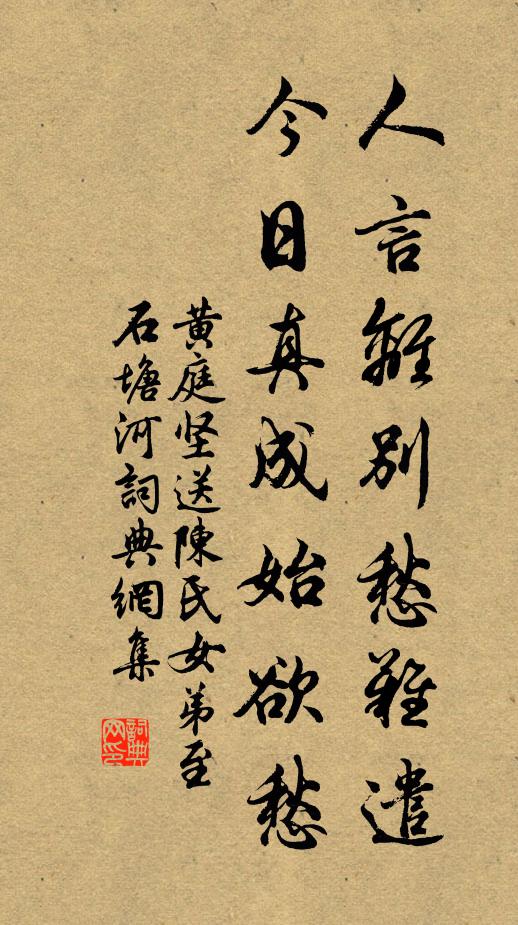 人言離别愁難遣
今日真成始欲愁
黄庭坚送陳氏女弟至
石塘河詞典網集
詞典
网印